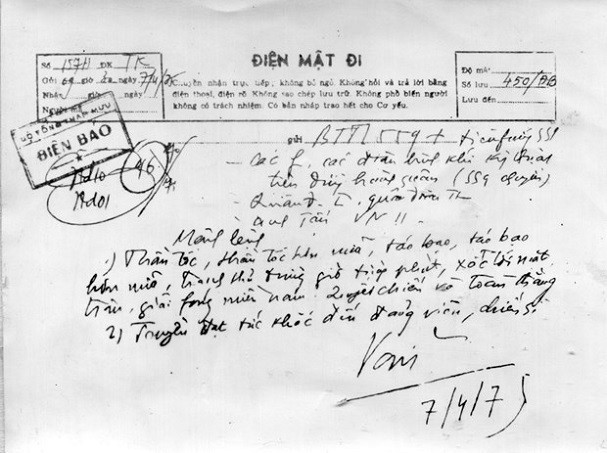 ĐIỆN MẬT ĐI
Số 157H ĐK TK
Gửi giờ ngày 7/4/75
Nhận giờ ngày
Người
Chuyển nhận trực tiếp; không bỏ ngỏ. Không hỏi và trả lời bằng
điện thoại, điện rõ. Không sao chép lưu trữ. Không phổ biến người
không có trách nhiệm. Có bản nhập trao hết cho Cơ yếu.
Độ mật
Số lưu 450/ĐB
Lưu đến
BỘ TỔNG THAM MƯU
ĐIỆN BÁO
gửi BTTM 559 +
các f, các
VN !!
Mệnh lệnh
1) Thần tốc, thần tốc hơn nữa, táo bạo, táo bạo
hơn nữa, tranh thủ từng giờ từng phút, xốc tới mặt
trận, giải fóng miền nam. Quyết chiến và toàn thắng
2) Truyền đạt tức khắc đến đảng viên, chiến sĩ
Văn
7/4/75